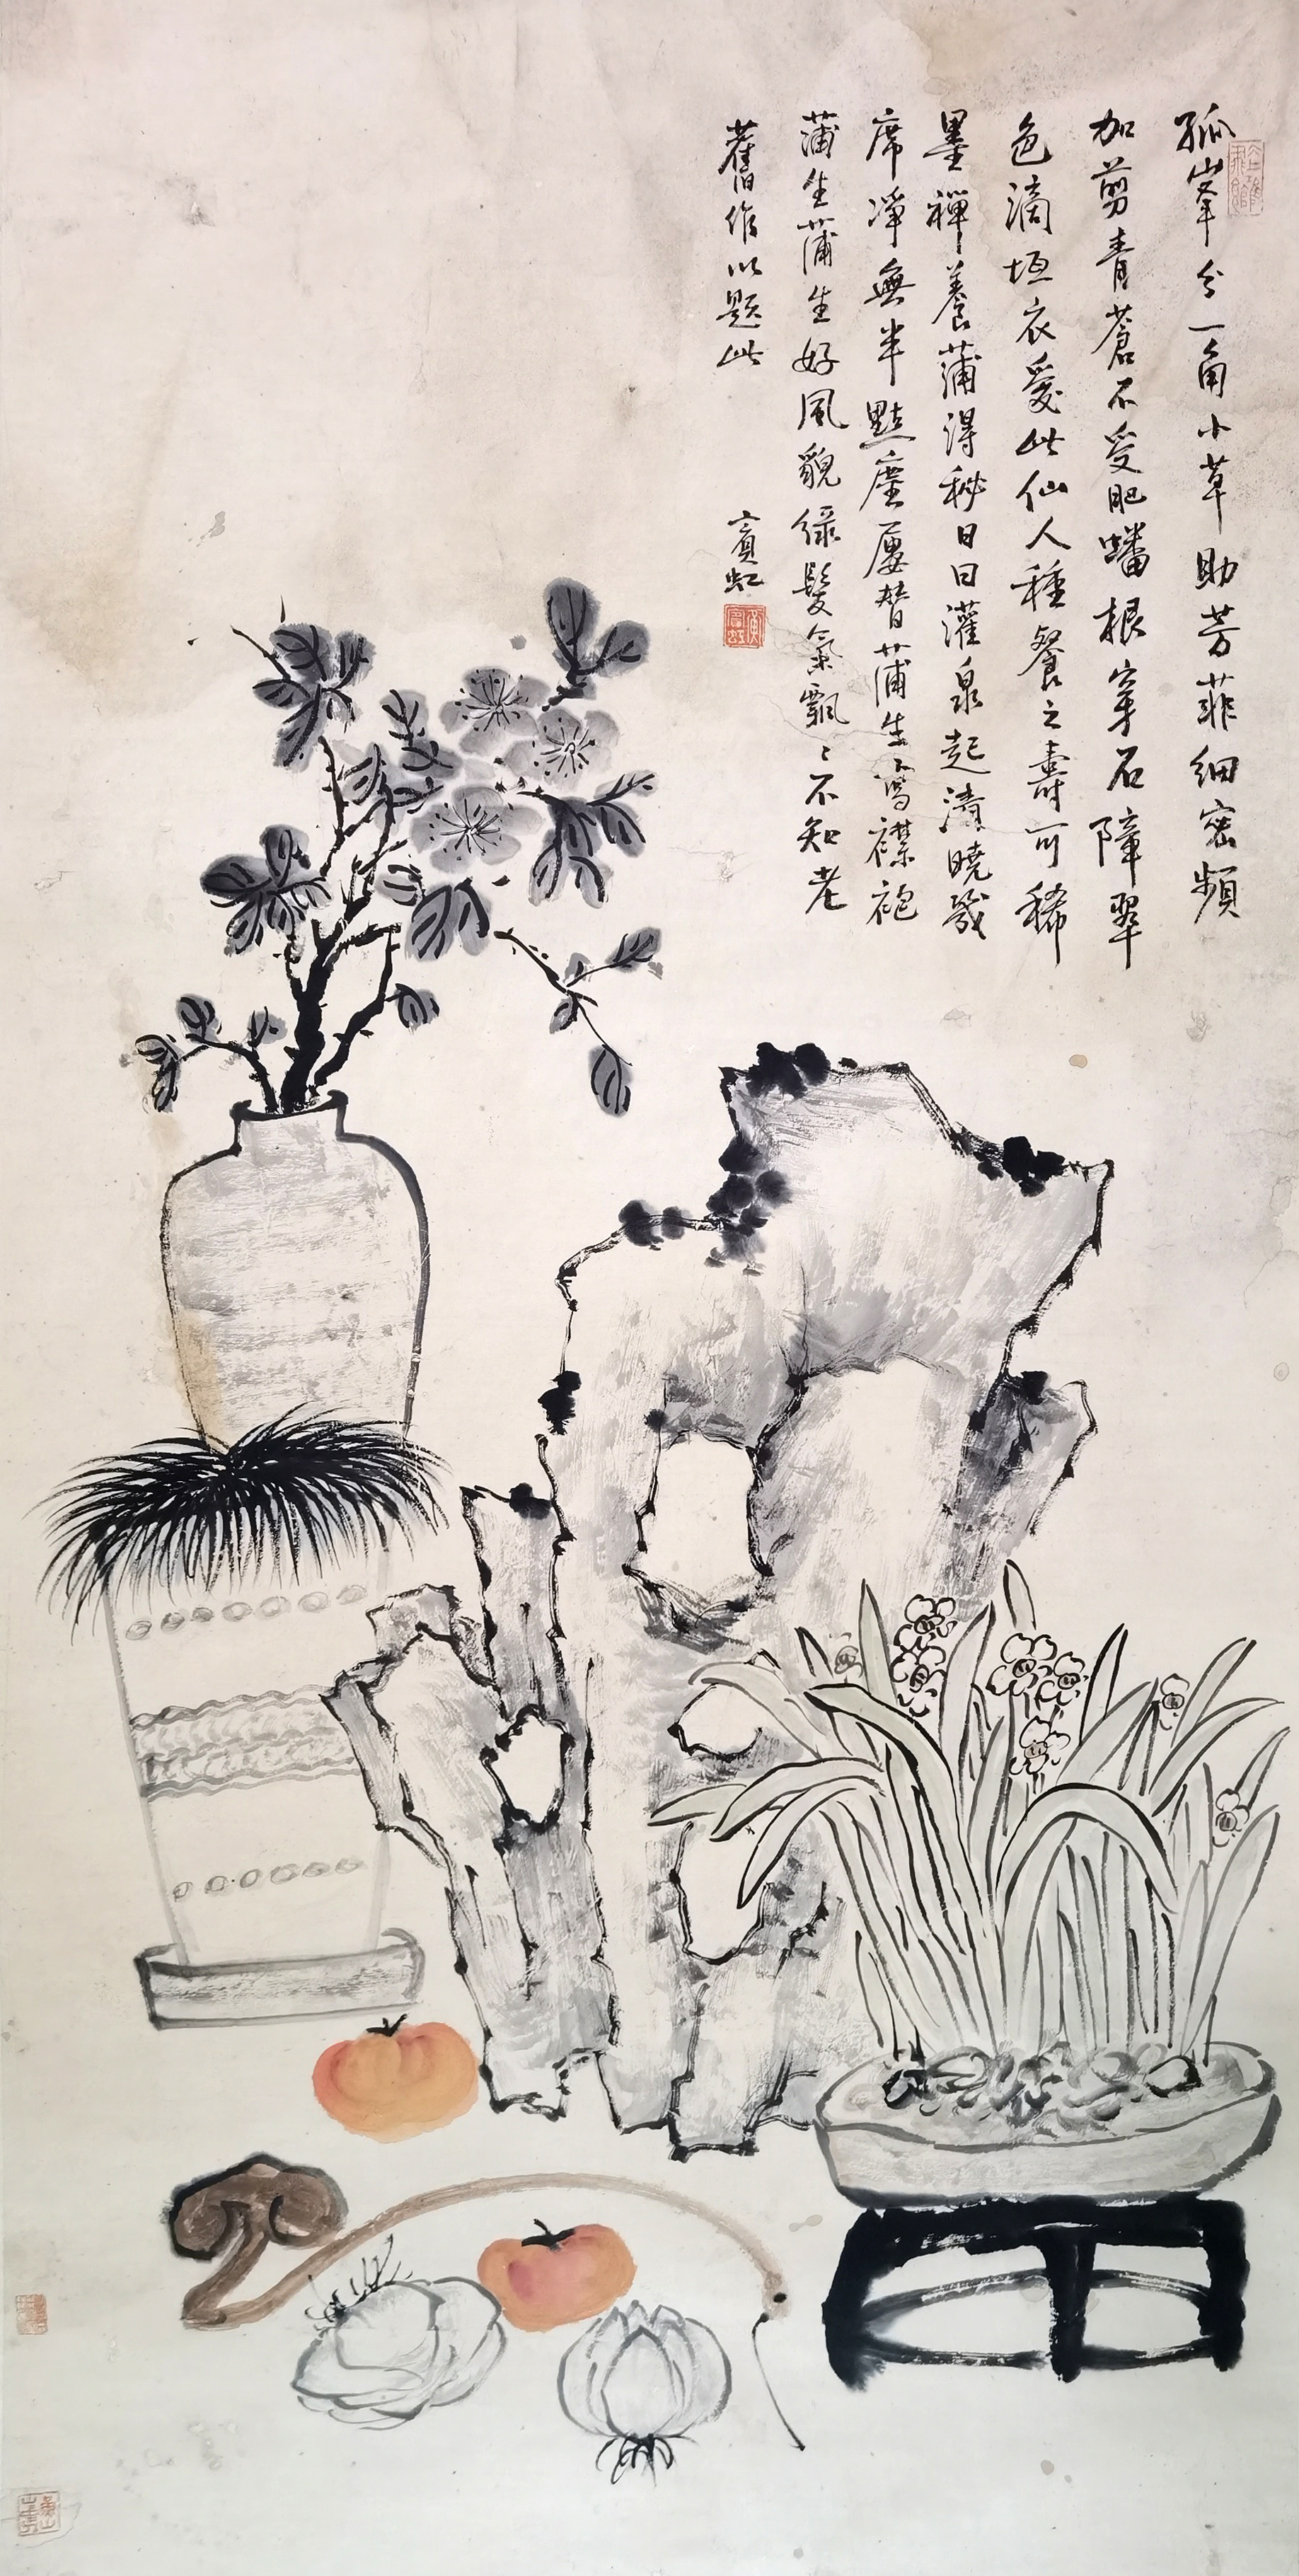 孤峯分一角小草助芳菲細密頻
加剪青蒼不受肥蟠根穿石障翠
色滴垣衣愛此仙人種餐之壽可稀
墨禪養蒲得秘日日灌泉起清曉幾
席凈無半點塵屢替蒲生寫襟袍
蒲生蒲生好風貌綠髮氣飄〻不知老
舊作以題此
賓虹
黃賓虹